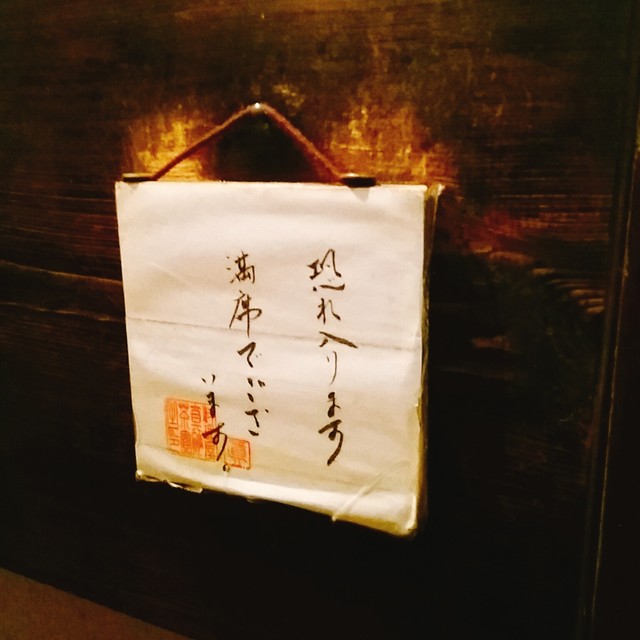 恐れ入ります
満席でござ
います。